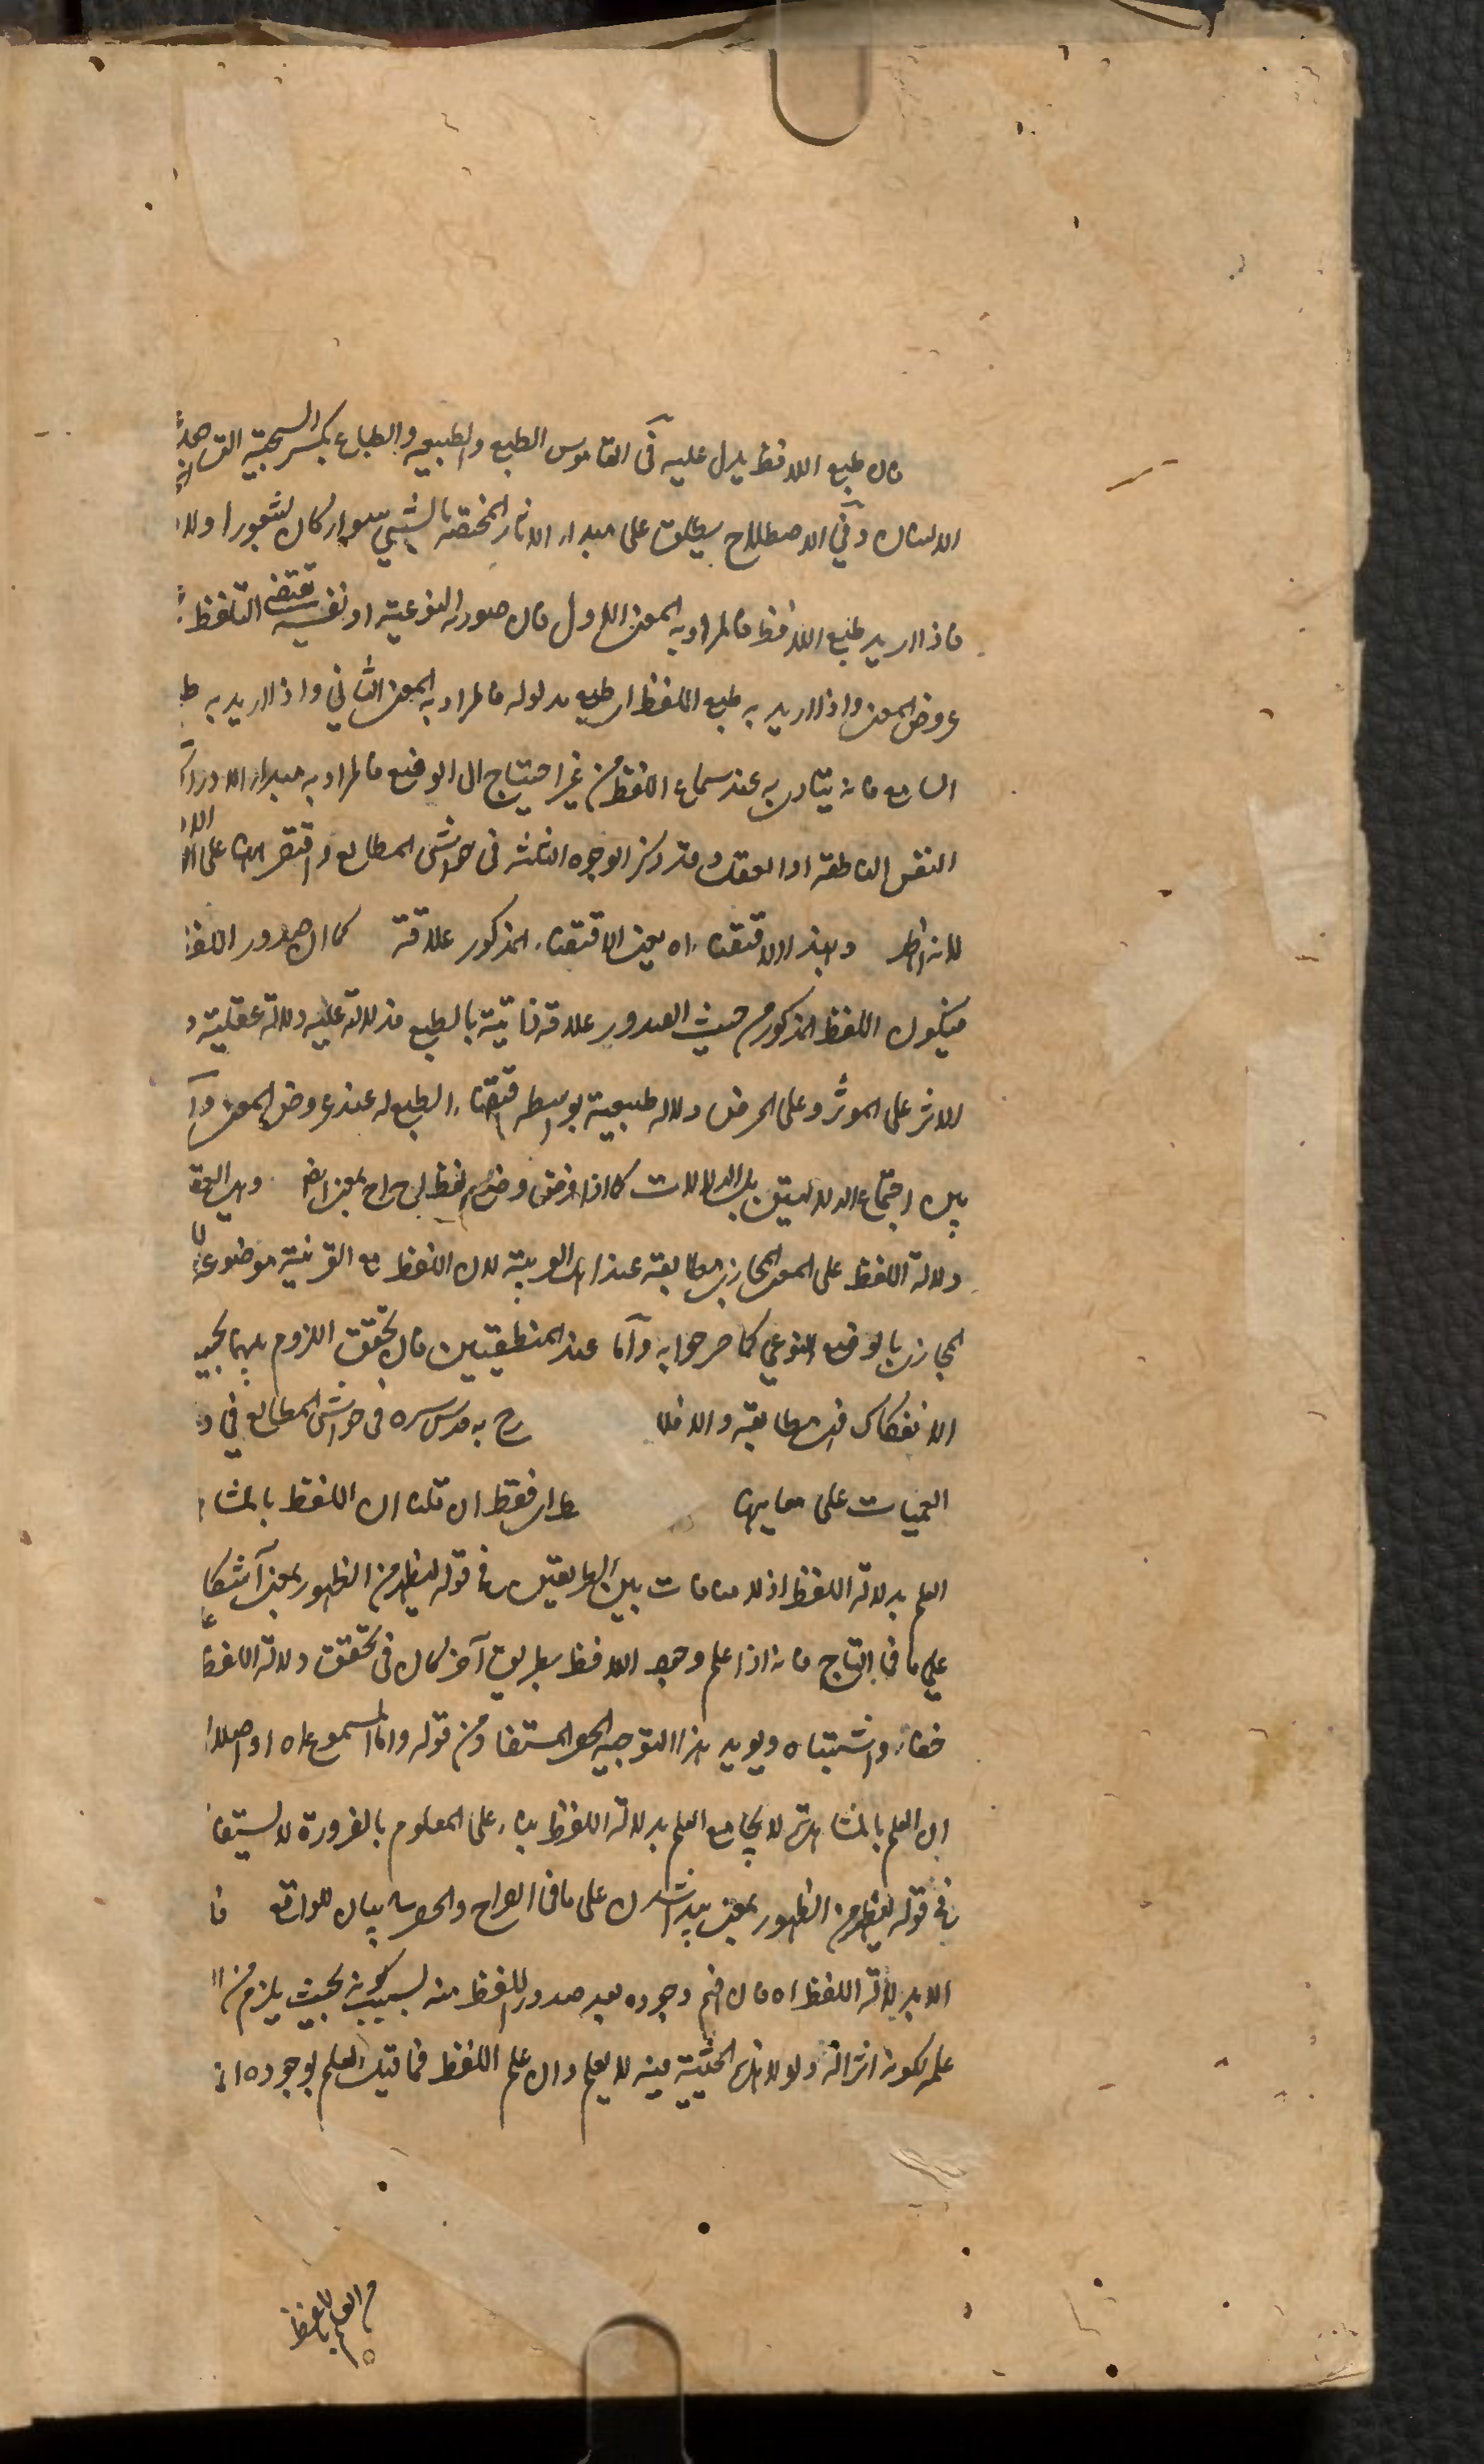 فان طبع اللافظ يدل عليه في القاموس الطبع والطبيعه والطباع بكسر السجية التي
الانسان وفي الاصطلاح يطلق على مبدء الاثار المختصة بالشيء سواء كان بشعور اولا
فاذا اريد طبع اللافظ فالمراد به المعنى الاول فان صورته النوعية او نفسه تقتضي التلفظ
عروض المعنى واذا اريد به طبع اللفظ اي طبع مدلوله فالمراد به المعنى الثاني واذا اريد به ط
السامع فانه يتادى به عند سماع اللفظ من غير احتياج الى الوضع فالمراد به مبدء الادراك
النفس الناطقة او العقل وقد ذكر الوجوه الثلثة في حواشي المطالع واقتصر ههنا على
لانه اظهر وبهذا الاقتضاء اه يعني الاقتضاء المذكور علاقة كما ان صدور اللفظ
فيكون اللفظ المذكور من حيث الصدور علاقة ذاتية بالطبع فدلالته عليه دلالة عقلية و
الاثر على المؤثر وعلى المرض دلالة طبيعية بواسطة اقتضاء الطبع له عند عروض المعنى و
بين اجتماع الدلالتين بل الدلالات كما اذا فرض وضع لفظ اح اح بمعنى ايضا
دلالة اللفظ على المعنى المجازي مطابقة عند اهل العربية لان اللفظ مع القرينة موضوع
المجازي بالوضع النوعي كما صرحوا به واما عند المنطقيين فان تحقق اللزوم بينهما بحيث
الانفكاك فهي مطابقة والا فلا صرح به قدس سره في حواشي المطالع في
المعميات على معانيها فقط ان قلنا ان اللفظ بالمشا
العلم بدلالة اللفظ اذ لا منافات بين الطريقين في قوله ليظهر من الظهور بمعنى آشكا
على ما في التاج فانه اذا علم وجود اللافظ بطريق آخر كان في تحقق دلالة اللفظ
خفاء واشتباه ويويد هذا التوجيه الحصر المستفاد من قوله واما المسموع اه
ان العلم بالمشاهدة لا يجامع العلم بدلالة اللفظ بناء على المعلوم بالضرورة لا يستفا
في قوله ليظهر من الظهور بمعنى پيدا شدن على ما في الصراح والحصر بيان للواقع فا
الا بدلالة اللفظ اه فان فهم وجوده بعد صدور اللفظ منه بسبب كونه بحيث يلزم من
علمه لكونه اثرا له ولولا هذه الحيثية فيه لا يعلم وان علم اللفظ فما قيل العلم بوجوده
من العلم باللفظ